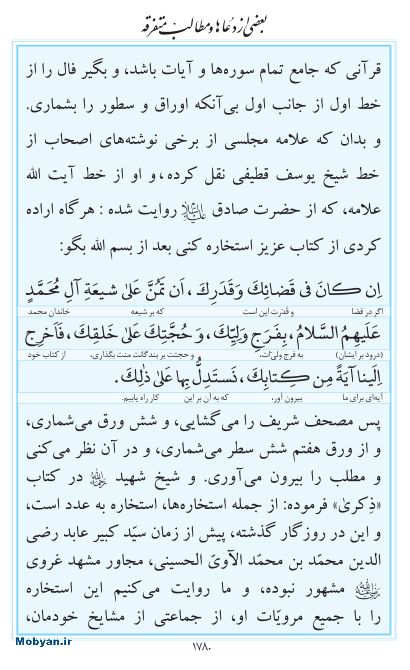 بعضی از دعاها و مطالب متفرقه
قرآنی که جامع تمام سوره‌ها و آیات باشد، و بگیر فال را از
خط اول از جانب اول بی‌آنکه اوراق و سطور را بشماری.
و بدان که علامه مجلسی از برخی نوشته‌های اصحاب از
خط شیخ یوسف قطیفی نقل کرده، و او از خط آیت الله
علامه، که از حضرت صادق علیه‌السلام روایت شده : هرگاه اراده
کردی از کتاب عزیز استخاره کنی بعد از بسم الله بگو:
اِن كانَ فى قَضائِكَ وَقَدَرِكَ، اَن تَمُنَّ عَلىٰ شيعَةِ آلِ مُحَمَّدٍ
اگر در قضا و قدرت این است که بر شیعه خاندان محمد
عَلَيهِمُ السَّلامُ، بِفَرَجِ وَلِيِّكَ، وَحُجَّتِكَ عَلىٰ خَلقِكَ، فَاَخرِج
(درود بر ایشان) به فرج ولیّ‌ات، و حجتت بر بندگانت منت بگذاری، از کتاب خود
اِلَينا آيَةً مِن كِتابِكَ، نَستَدِلُّ بِها عَلىٰ ذٰلِكَ.
آیه‌ای برای ما بیرون آور، که به آن بر این کار راه یابیم.
پس مصحف شریف را می‌گشایی، و شش ورق می‌شماری،
و از ورق هفتم شش سطر می‌شماری، و در آن نظر می‌کنی
و مطلب را بیرون می‌آوری. و شیخ شهید در کتاب
«ذِکریٰ» فرموده: از جمله استخاره‌ها، استخاره به عدد است،
و این در روزگار گذشته، پیش از زمان سیّد کبیر عابد رضی
الدین محمّد بن محمّد الآویّ الحسینی، مجاور مشهد غروی
مشهور نبوده، و ما روایت می‌کنیم این استخاره
را با جمیع مرویّات او، از جماعتی از مشایخ خودمان،
Mobyan.ir
۱۷۸۰